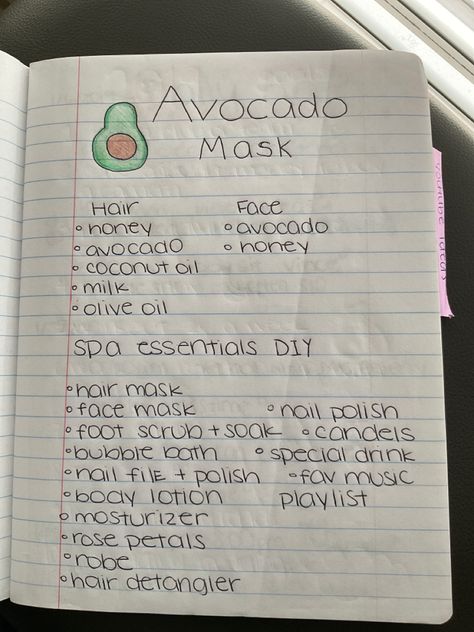 Avocado
Mask
Hair Face
• honey • avocado
• avocado • honey
• coconut oil
• milk
• olive oil
Spa essentials DIY
• hair mask
• face mask • nail polish
• foot scrub + soak • candels
• bubble bath • special drink
• nail file + polish • fav music
• body lotion playlist
• mosturizer
• rose petals
• robe
• hair detangler
youtube ideas